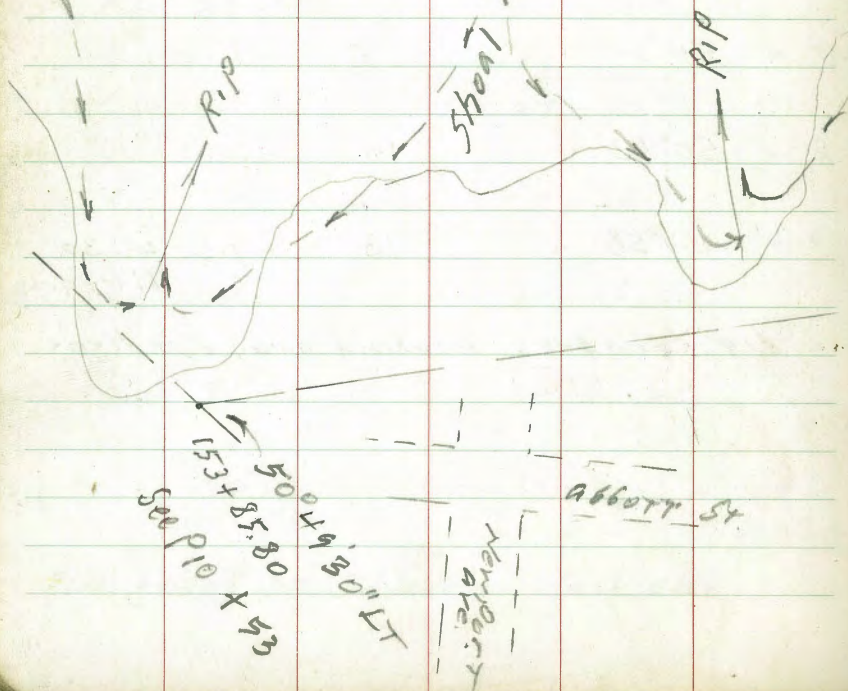 RIP
Shoal
RIP
50° 49' 30" LT
153 + 85.80
See p10 x 53
abbott St.
Newport
ave.